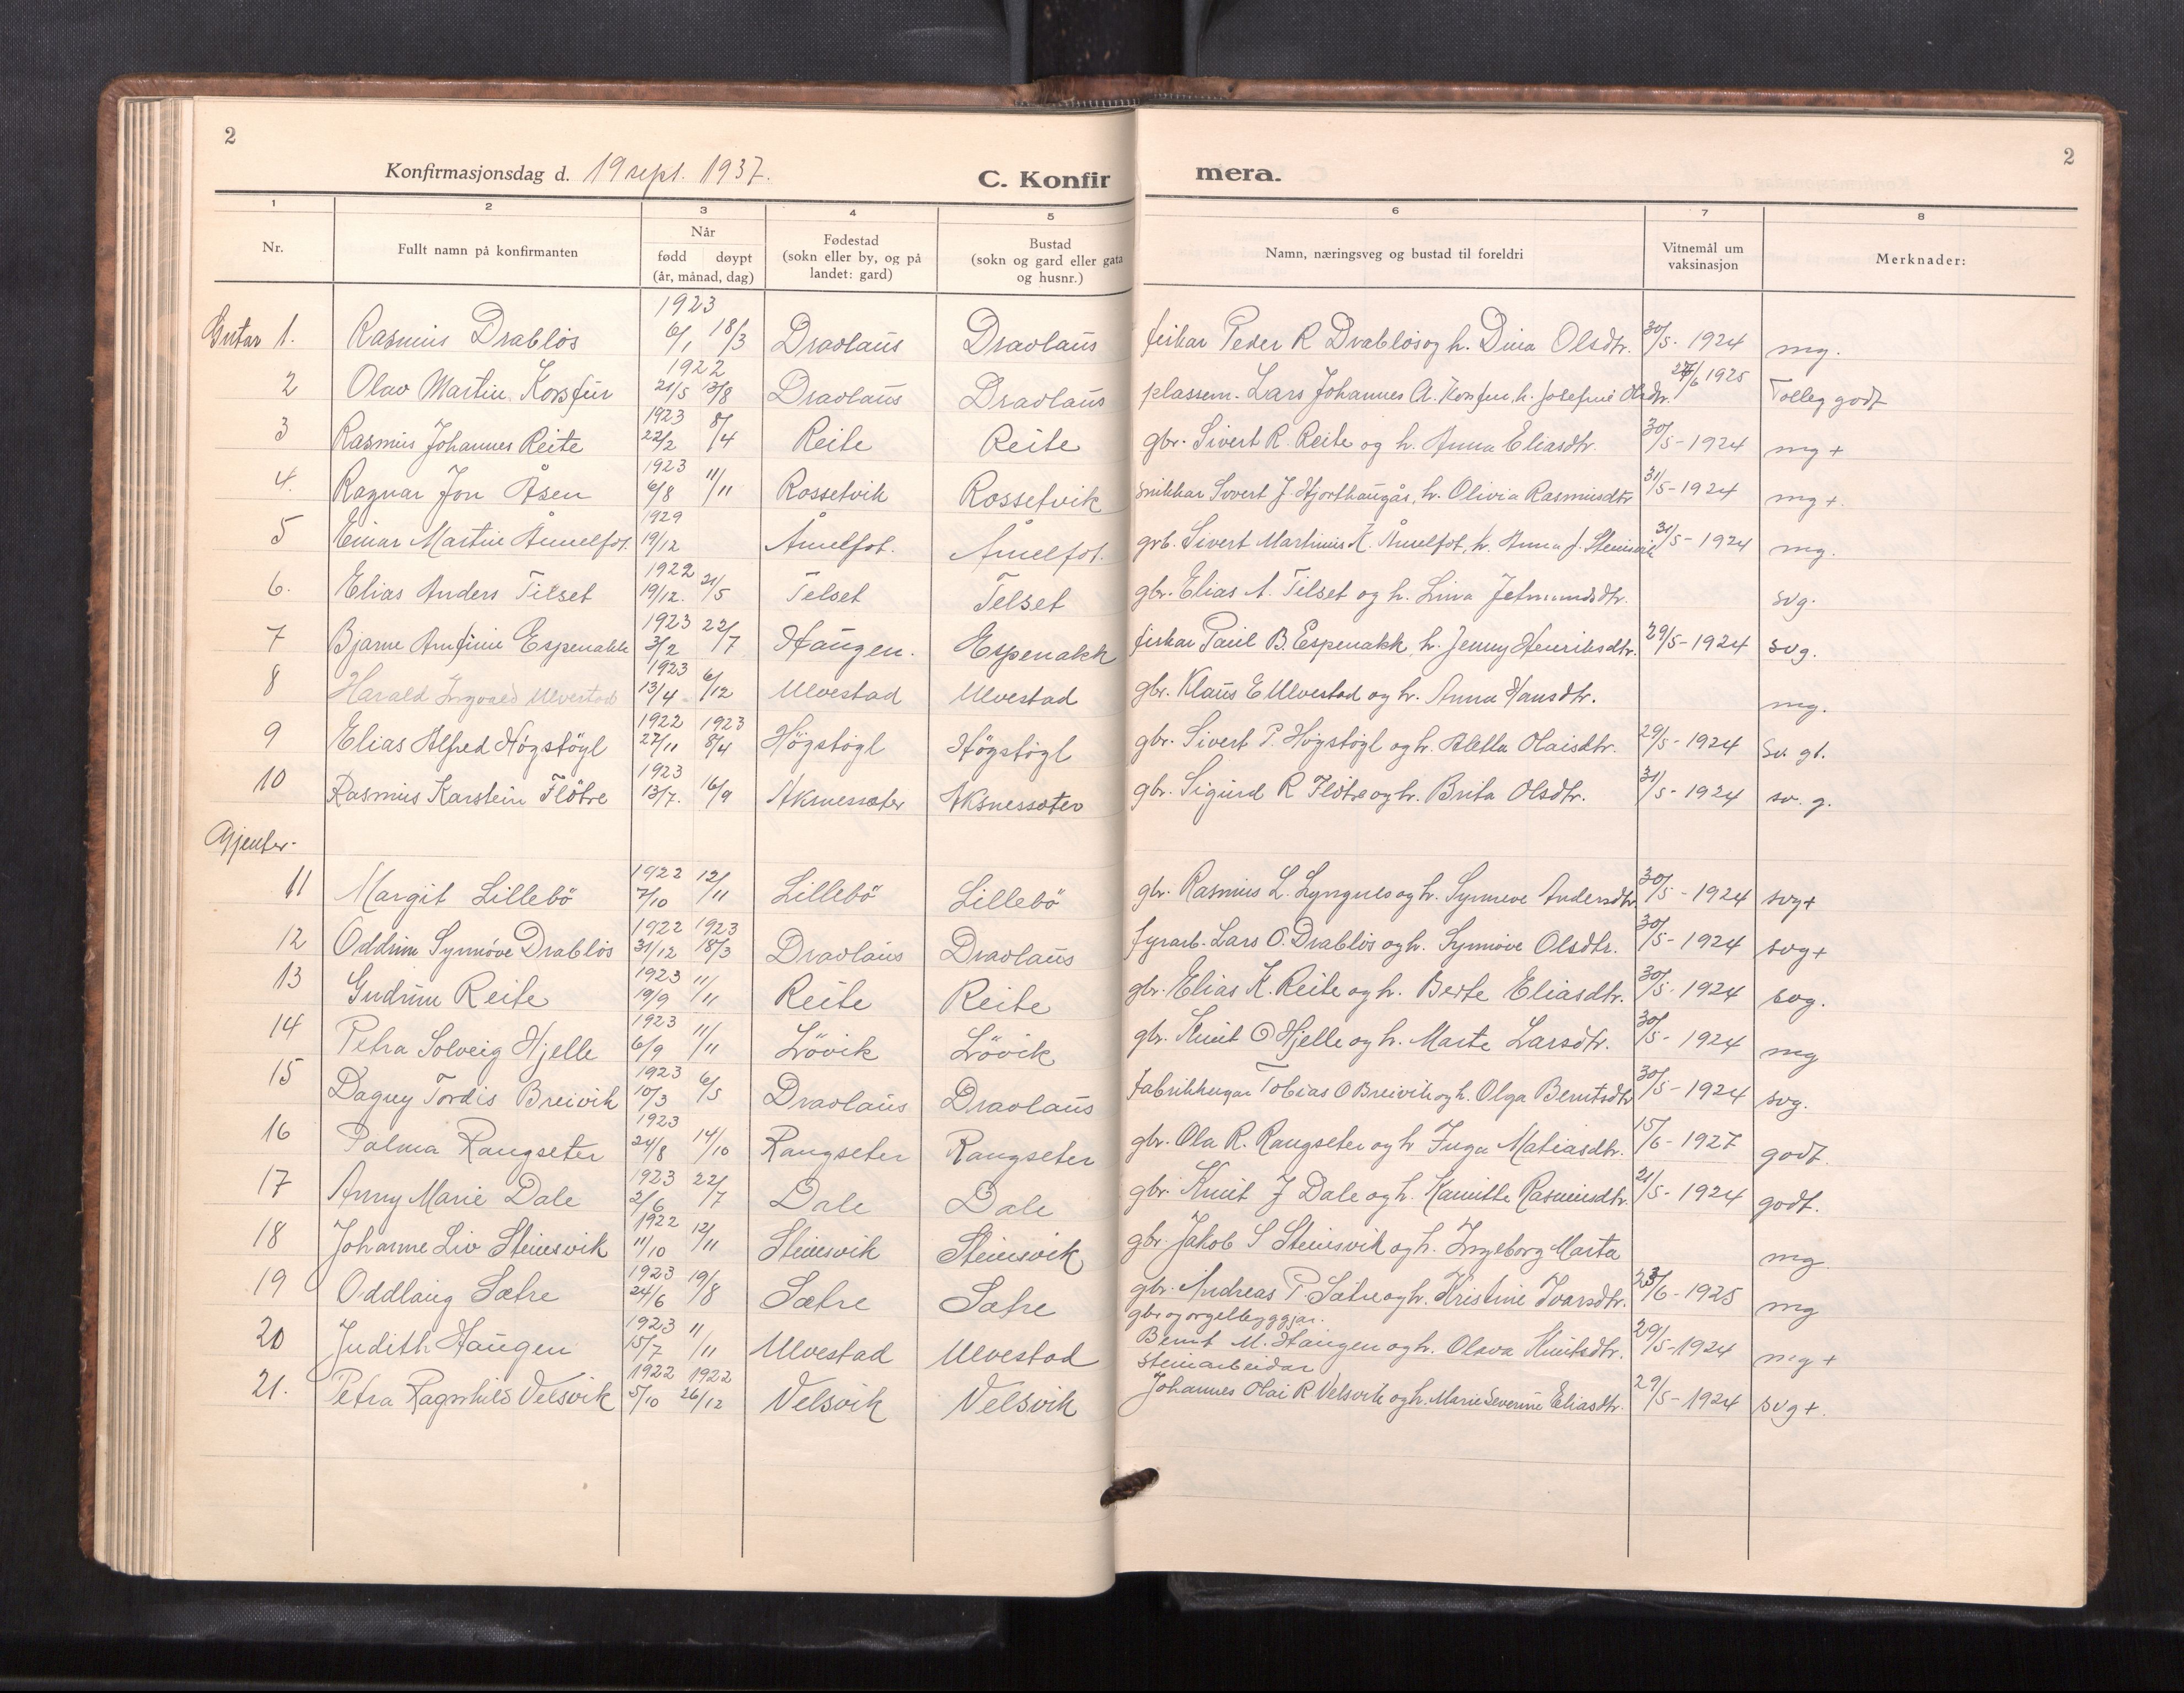 2
2
Konfirmasjonsdag d. 19 sept. 1937.
C. Konfirmera.
1 2 3 4 5 6 7 8
Nr. Fullt namn på konfirmanten Når fødd døypt (år, månad, dag) Fødestad (sokn eller by, og på landet: gard) Bustad (sokn og gard eller gata og husnr.) Namn, næringsveg og bustad til foreldri Vitnemål um vaksinasjon Merknader:
Gutar 1. Rasmus Drabløs 1923 6/1 18/3 Dravlaus Dravlaus fiskar Peder R Drabløs og h. Dina Olsdtr. 30/5-1924 mg.
2 Olav Martin Korsfur 1922 21/5 13/8 Dravlaus Dravlaus plassem. Lars Johannes A. Korsfur, h. Josefine Olsdtr. /6 1925 Tolleg godt
3 Rasmus Johannes Reite 1923 22/2 8/4 Reite Reite gbr. Sivert R. Reite og h. Anna Eliasdtr. 30/5-1924 mg +
4. Ragnar Jon Åsen 1923 6/8 11/11 Rossetvik Rossetvik snikkar Sivert J. Hjorthaugås, h. Olivia Rasmusdtr 31/5-1924 mg +.
5 Einar Martin Åmelfot. 1929 19/12 Åmelfot. Åmelfot. grb. Sivert Martinus K. Åmelfot, h. Anna J. Steinsvik 31/5-1924 mg.
6. Elias Anders Tilset 1922 19/12. 21/5 Telset Telset gbr. Elias A. Tilset og h. Lina Jetmundsdtr. svg.
7 Bjarne Arnfinn Espenakk 1923 3/2 22/7 Haugen. Espenakk fiskar Paul B. Espenakk, h. Jenny Henriksdtr. 29/5-1924 svg.
8 Harald Ingvald Ulvestad 1923 13/4 6/12 Ulvestad Ulvestad gbr. Klaus E Ulvestad og h. Anna Hansdtr. mg.
9 Elias Alfred Högstögl 1922 27/11 1923 8/4 Högstögl Högstögl gbr. Sivert P. Högstögl og h. Aletta Olaisdtr. 29/5-1924 sv. gt.
10 Rasmus Karstein Flötre 1923 13/7. 16/9 Aksnessæter Aksnessæter gbr. Sigurd R Flötre og h. Brita Olsdtr. 31/5-1924 sv. g.
Gjenter.
11 Margit Lillebö 1922 7/10 12/11 Lillebö Lillebö gbr. Rasmus L. Lyngnes og h. Synneve Andersdtr 30/5-1924 svg+
12 Oddrun Synnöve Drabløs 1922 31/12 1923 18/3 Dravlaus Dravlaus fyrarb. Lars O. Drabløs og h. Synnöve Olsdtr. 30/5-1924 svg+
13 Gudrun Reite 1923 19/9 11/11 Reite Reite gbr. Elias K. Reite og h. Berte Eliasdtr. 30/5-1924 svg.
14 Petra Solveig Hjelle 1923 6/9 11/11 Lövik Lövik gbr. Knut O Hjelle og h. Marte Larsdtr. 30/5-1924 mg
15 Dagny Tordis Breivik 1923 10/3 6/5 Dravlaus Dravlaus Fabrikkeigar Tobias O Breivik og h. Olga Berntsdtr 30/5-1924 svg.
16 Palma Rangseter 1923 24/8 14/10 Rangseter Rangseter gbr. Ola R. Rangseter og h Inga Matiasdtr. 15/6-1927 godt.
17 Anny Marie Dale 1923 2/6 22/7 Dale Dale gbr. Knut J Dale og h. Kamilla Rasmusdtr. 21/5-1924 godt.
18 Johanne Liv Steinsvik 1922 11/10 12/11 Steinsvik Steinsvik gbr. Jakob S Steinsvik og h. Ingeborg Marta mg.
19 Oddlaug Sætre 1923 24/6 19/8 Sætre Sætre gbr. Andreas P. Sætre og h. Kristine Ivarsdtr. 23/6-1925 mg
20 Judith Haugen 1923 15/7 11/11 Ulvestad Ulvestad gbr og orgelbygggjar. Bernt M. Haugen og h. Olava Knutsdtr. 29/5-1924 mg +
21. Petra Ragnhild Velsvik 1922 5/10 1922 26/12 Velsvik Velsvik Steinarbeidar Johannes Olai R Velsvik og h. Marie Severine Eliasdtr. 29/5-1924 svg +.